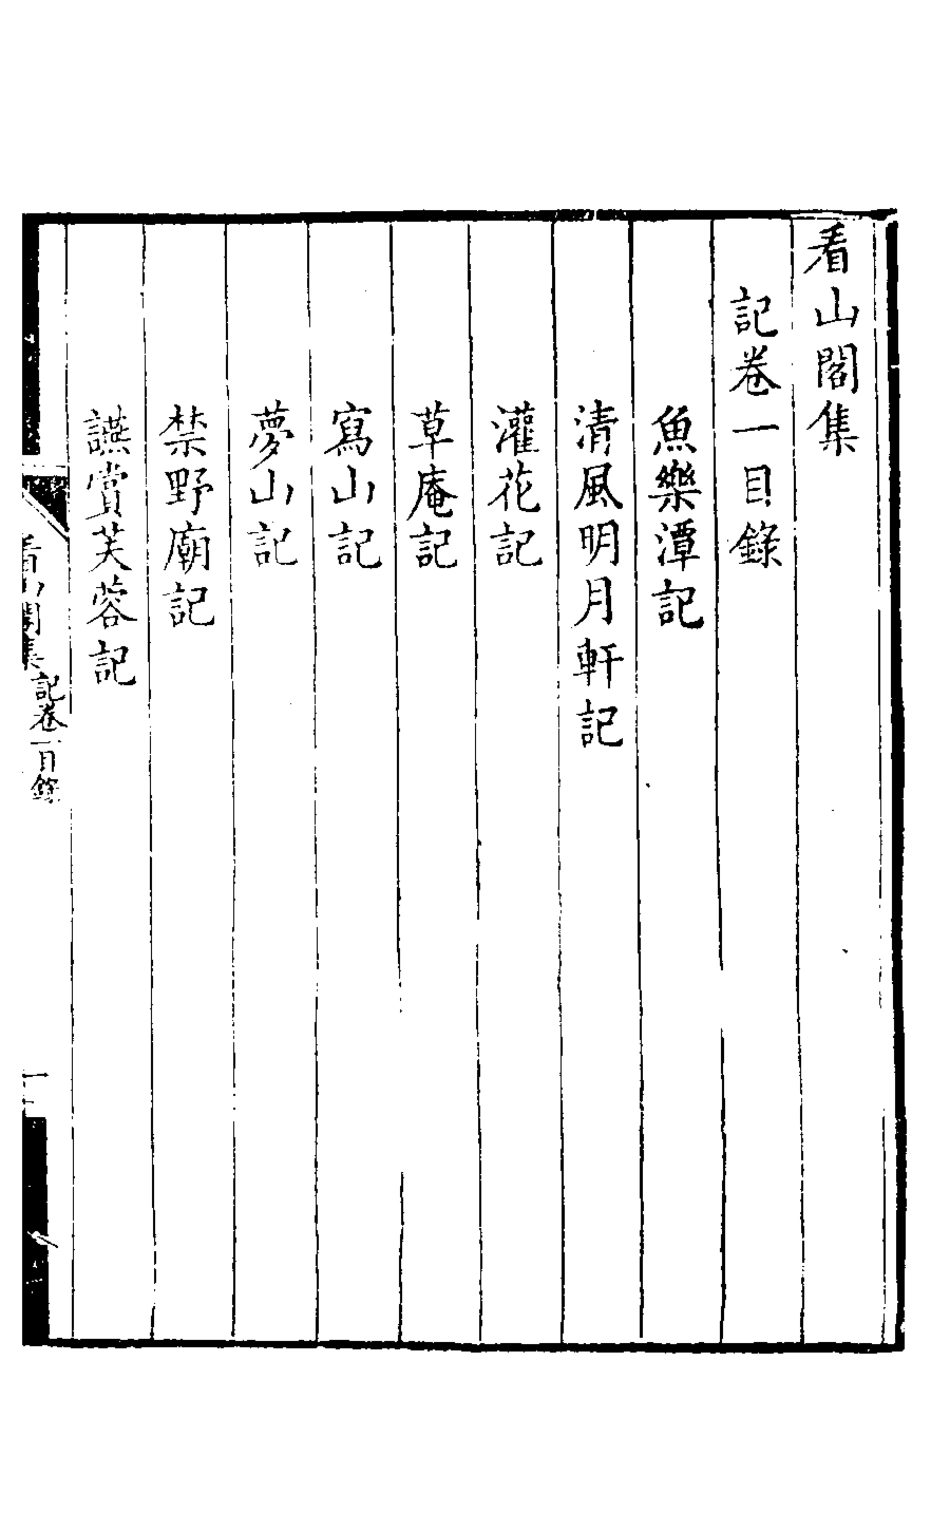 看山閣集
記卷一目錄
魚樂潭記
清風明月軒記
灌花記
草庵記
寫山記
夢山記
禁野廟記
讌賞芙蓉記
看山閣集
記卷一目錄
一